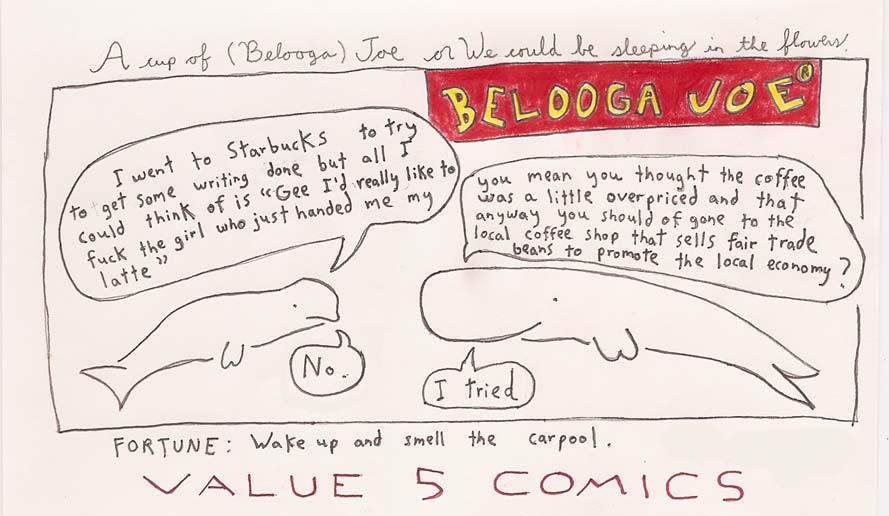 A cup of (Belooga) Joe or We could be sleeping in the flowers.
BELOOGA JOE®
I went to Starbucks to try
to get some writing done but all I
could think of is "Gee I'd really like to
fuck the girl who just handed me my
latte"
you mean you thought the coffee
was a little overpriced and that
anyway you should of gone to the
local coffee shop that sells fair trade
beans to promote the local economy?
No.
I tried
FORTUNE: Wake up and smell the carpool.
VALUE 5 COMICS